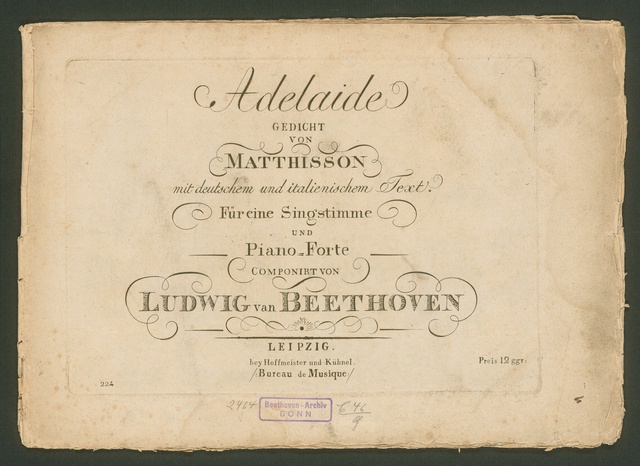 Adelaide
GEDICHT
VON
MATTHISSON
mit deutschem und italienischem Text.
Für eine Singstimme
UND
Piano-Forte
COMPONIRT VON
LUDWIG van BEETHOVEN
LEIPZIG.
bey Hoffmeister und Kühnel.
/Bureau de Musique/
Preis 12 ggr.
224
2464
Beethoven-Archiv
BONN
C 46
9